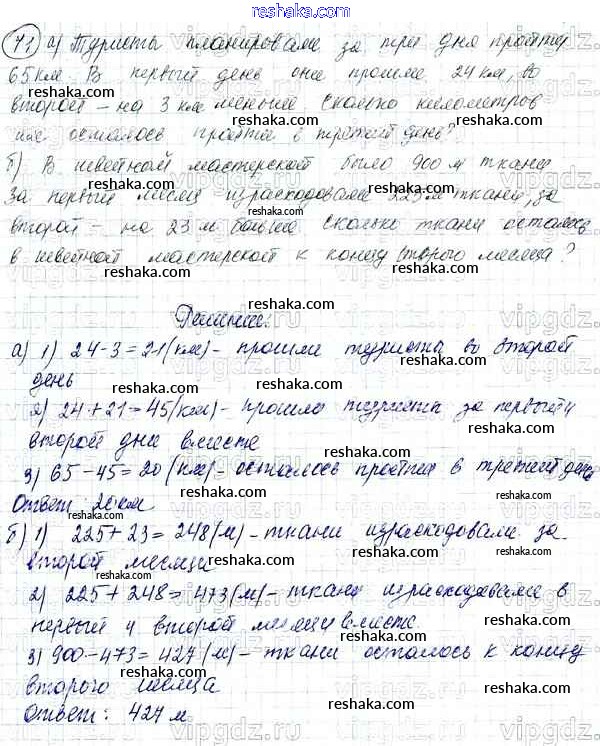 reshaka.com
71 а) Туристы планировали за три дня пройти
65 км. В первый день они прошли 24 км, во
второй – на 3 км меньше. Сколько километров
им осталось пройти в третий день?
б) В швейной мастерской было 900 м ткани
За первый месяц израсходовали 225 м ткани, за
второй – на 23 м больше. Сколько ткани осталось
в швейной мастерской к концу второго месяца?
Решение:
а) 1) 24-3=21(км) – прошли туристы во второй
день
2) 24+21=45(км) – прошли туристы за первый и
второй дни вместе
3) 65-45=20 (км) – осталось пройти в третий день
Ответ: 20 км.
б) 1) 225+23=248(м) – ткани израсходовали за
второй месяц
2) 225+248=473(м) – ткани израсходовали в
первый и второй месяцы вместе
3) 900-473=427(м) – ткани осталось к концу
второго месяца
Ответ: 427 м